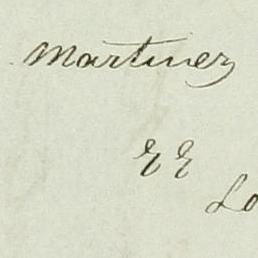 Martinez
EE
Lo